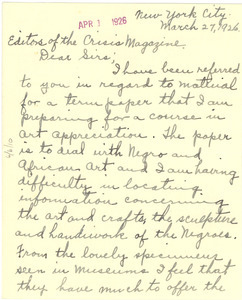 New York City
APR 1 1926
March 27, 1926.
Editors of the Crisis Magazine,
Dear Sirs:
I have been referred
to you in regard to material
for a term paper that I am
preparing for a course in
Art Appreciation. The paper
is to deal with Negro and
African Art and I am having
difficulty in locating
information concerning
the art and crafts, the sculpture
and handiwork of the Negroes.
From the lovely specimens
seen in Museums I feel that
they have much to offer the